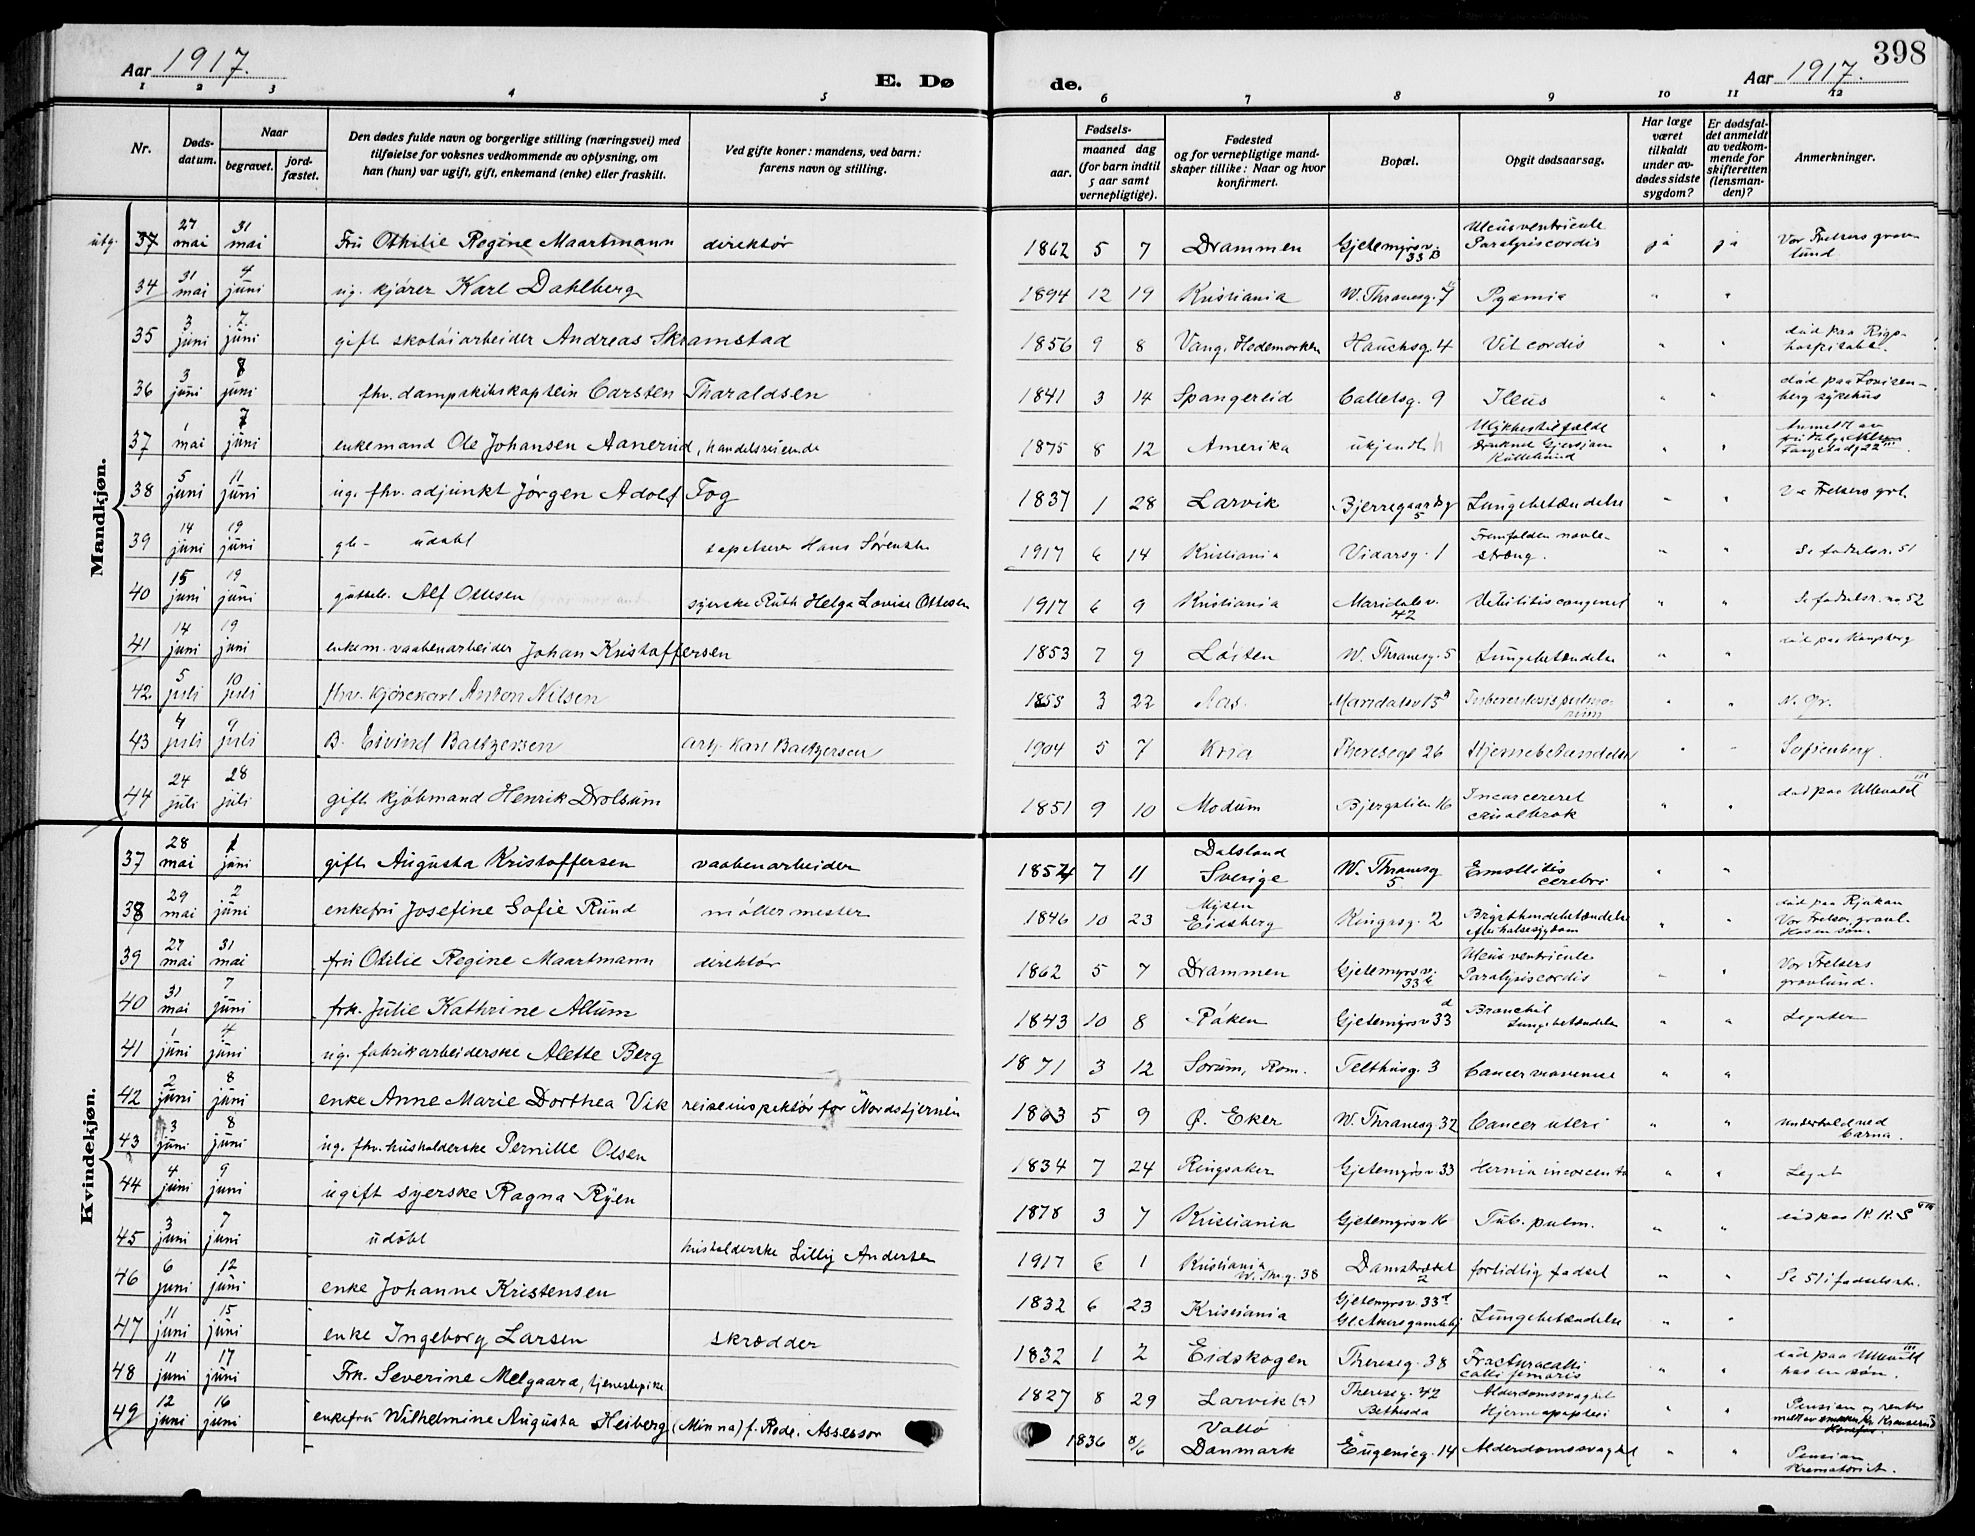 398
Aar 1917.
E. Dø
de.
Aar 1917.
1 2 3 4 5 6 7 8 9 10 11 12
Nr.
Døds-
datum.
Naar
begravet.
jord-
fæstet.
Den dødes fulde navn og borgerlige stilling (næringsvei) med
tilføielse for voksnes vedkommende av oplysning, om
han (hun) var ugift, gift, enkemand (enke) eller fraskilt.
Ved gifte koner: mandens, ved barn:
farens navn og stilling.
Fødsels-
aar.
maaned dag
(for barn indtil
5 aar samt
vernepligtige).
Fødested
og for vernepligtige mand-
skaper tillike: Naar og hvor
konfirmert.
Bopæl.
Opgit dødsaarsag.
Har læge
været
tilkaldt
under av-
dødes sidste
sygdom?
Er dødsfal-
det anmeldt
av vedkom-
mende for
skifteretten
(lensman-
den)?
Anmerkninger.
Mandkjøn.
utg. 37 27 mai 31 mai Fru Othilie Regine Maartmann direktør 1862 5 7 Drammen Gjetemyrsv. 33 B Ulcus ventricule Paralysis cordis ja ja Vor Frelsers grav-
lund
34 31 mai 4 juni ug. kjører Karl Dahlberg 1894 12 19 Kristiania W. Thranesg. 7 Pyamia " "
35 3 juni 7. juni gift skotøiarbeider Andreas Skramstad 1856 9 8 Vang, Hedemarken Hauchsg. 4 Vit cordis " " død paa Rigs-
hospitalet.
36 3 juni 8 juni fhv. dampskibskaptein Carsten Tharaldsen 1841 3 14 Spangereid Calletsg. 9 Ileus " " død paa Lovisen-
berg sykehus
37 1 mai 7 juni enkemand Ole Johansen Aanerud, handelsreisende 1875 8 12 Amerika ukjendt Ulykkestilfælde Druknet Gjersjøen " " Anmeldt av
38 5 juni 11 juni ug. fhv. adjunkt Jørgen Adolf Fog 1837 1 28 Larvik Bjerregaardsg 5 Lungebetændelse " " Vor Frelsers grl.
39 14 juni 19 juni gb- udøbt tapetserer Hans Sørensen 1917 6 14 Kristiania Vidarsg. 1 Fremfalden navle-
stræng. " " Se fødselsr. 51
40 15 juni 19 juni gutteb. Alf Ottesen syerske Ruth Helga Lovise Ottesen 1917 6 9 Kristiania Maridalsv. 42 Debilitis congenet " " Se fødselsr. no. 52
41 14 juni 19 juni enkem. vaabenarbeider Johan Kristoffersen 1853 7 9 Løiten W. Thranesg. 5 Lungebetændelse " " død paa Kongsberg
42 5 juli 10 juli fhv. kjørekarl Anton Nilsen 1855 3 22 Aas. Maridalsv 15 a Tuberculosis pulmo-
num " " N. Gr.
43 4 juli 9 juli B. Eivind Baltzersen arb. Karl Baltzersen 1904 5 7 Kria Theresegt 26 Hjernebetændelse " " Sofienberg.
44 24 juli 28 juli gift kjøbmand Henrik Drolsum 1851 9 10 Modum Bjergalleen 16 Incarcereret
cruralbrok " " død paa Ullevaal
Kvindekjøn.
37 28 mai 1 juni gift Augusta Kristoffersen vaabenarbeider 1854 7 11 Dalsland
Sverige W. Thranesg 5 Emollitis
cerebri " "
38 29 mai 2 juni enkefru Josefine Sofie Rund møllermester 1846 10 23 Mysen
Eidsberg Kingosg. 2 Brysthindebetændelse " " død paa Rjukan
Vor Frelsers gravl.
Har en søn.
39 27 mai 31 mai fru Otilie Regine Maartmann direktør 1862 5 7 Drammen Gjetemyrsv. 33 b Ulcus ventricule
Paralysis cordis " " Vor Frelsers
gravlund.
40 31 mai 7 juni frk. Julie Kathrine Allum 1843 10 8 Røken Gjetemyrsv 33 d Bronchit
Lungebetændelse " " Legater
41 1 juni 4 juni ug. fabrikarbeiderske Alette Berg 1871 3 12 Sørum, Rom. Telthusg. 3 Cancer mammae " "
42 2 juni 8 juni enke Anne Marie Dorthea Vik reiseinspektør for "Nordstjernen" 1863 5 9 Ø. Eker W. Thranesg. 32 Cancer uteri " " underhold ved
barna.
43 3 juni 8 juni ug. fhv. husholderske Pernille Olsen 1834 7 24 Ringsaker Gjetemyrsv. 33 Hernia incarcerata " " Legat
44 4 juni 9 juni ugift syerske Ragna Ryen 1878 3 7 Kristiania Gjetemyrsv 16 Tub. pulm. " " død paa K. K. S
45 3 juni 7 juni udøbt husholderske Lilly Andersen 1917 6 1 Kristiania
W. Thrg. 38 Damstrædet 2 fortidlig fødsel " " Se 51 i fødselsr.
46 6 juni 12 juni enke Johanne Kristensen 1832 6 23 Kristiania Gjetemyrsv. 33 d
Gl. Akers gamlehj Lungebetændelse " "
47 11 juni 15 juni enke Ingeborg Larsen skrædder 1832 1 2 Eidskogen Theresesg. 38 Fractura colli
colli femoris " " død paa Ullevaal
har en søn.
48 11 juni 17 juni Frk. Severine Melgaard, tjenestepike 1827 8 29 Larvik (?) Theresesg. 42
Bethesda Alderdomssvaghet
Hjerneapoplexi " " Pension og renter
49 12 juni 16 juni enkefru Wilhelmine Augusta Heiberg (Minna) f. Rode. Assessor 1836 8/6 Vallø
Danmark Eugeniesg. 14 Alderdomssvaghet " " Pension
Krematoriet.